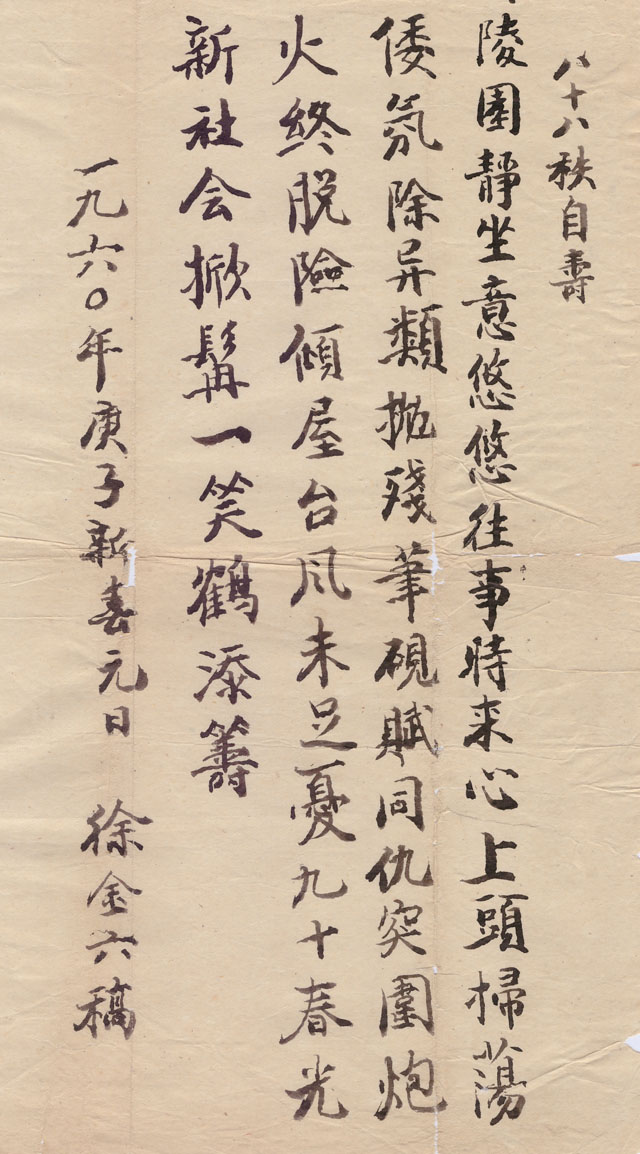 八十八秩自壽
陵園靜坐意悠悠往事時来心上頭掃蕩
倭氛除异類抛殘筆硯賦同仇突圍炮
火終脱險傾屋台风未足憂九十春光
新社会掀髯一笑鶴添籌
一九六〇年庚子新春元日 徐金六稿